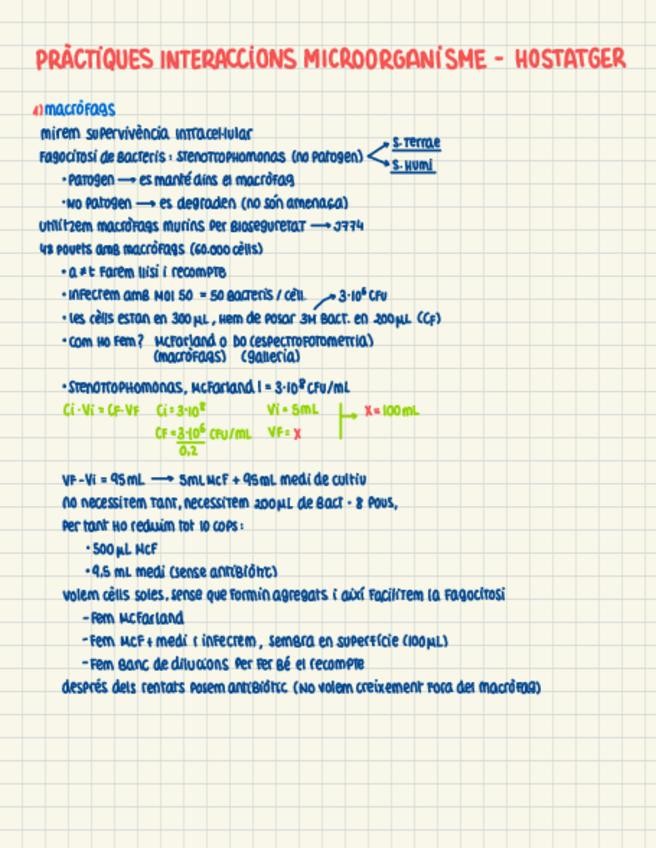 PRÀCTIQUES INTERACCIONS MICROORGANISME - HOSTATGER
1) macròfags
mirem supervivència intracel·lular
Fagocitosi de bacteris: Stenotrophomonas (no patogen) S. Terrae
S. Humi
· Patogen → es manté dins el macròfag
· No patogen → es degraden (no són amenaça)
utilitzem macròfags murins per bioseguretat → J774
48 pouets amb macròfags (60.000 cèlls)
· a ≠ t farem llisi i recompte
· infectem amb MOI 50 = 50 bacteris / cèll. 3·10⁶ CFU
· les cèlls estan en 300 µL, hem de posar 3M bact. en 200 µL (CF)
· com ho fem? McFarland o DO (espectrofotometria)
(macròfags) (galleria)
· Stenotrophomonas, McFarland 1 = 3·10⁸ CFU/mL
Ci · Vi = CF · VF Ci = 3·10⁸ Vi = 5 mL x = 100 mL
CF = 3·10⁶/0,2 CFU/mL VF = x
VF - Vi = 95 mL → 5 mL McF + 95 mL medi de cultiu
no necessitem tant, necessitem 200 µL de bact · 8 pous,
per tant ho reduim tot 10 cops:
· 500 µL McF
· 9,5 mL medi (sense antibiòtic)
volem cèlls soles, sense que formin agregats i així facilitem la fagocitosi
- Fem McFarland
- Fem McF + medi i infectem, sembra en superfície (100 µL)
- Fem banc de dilucions per fer bé el recompte
després dels rentats posem antibiòtic (no volem creixement fora del macròfag)